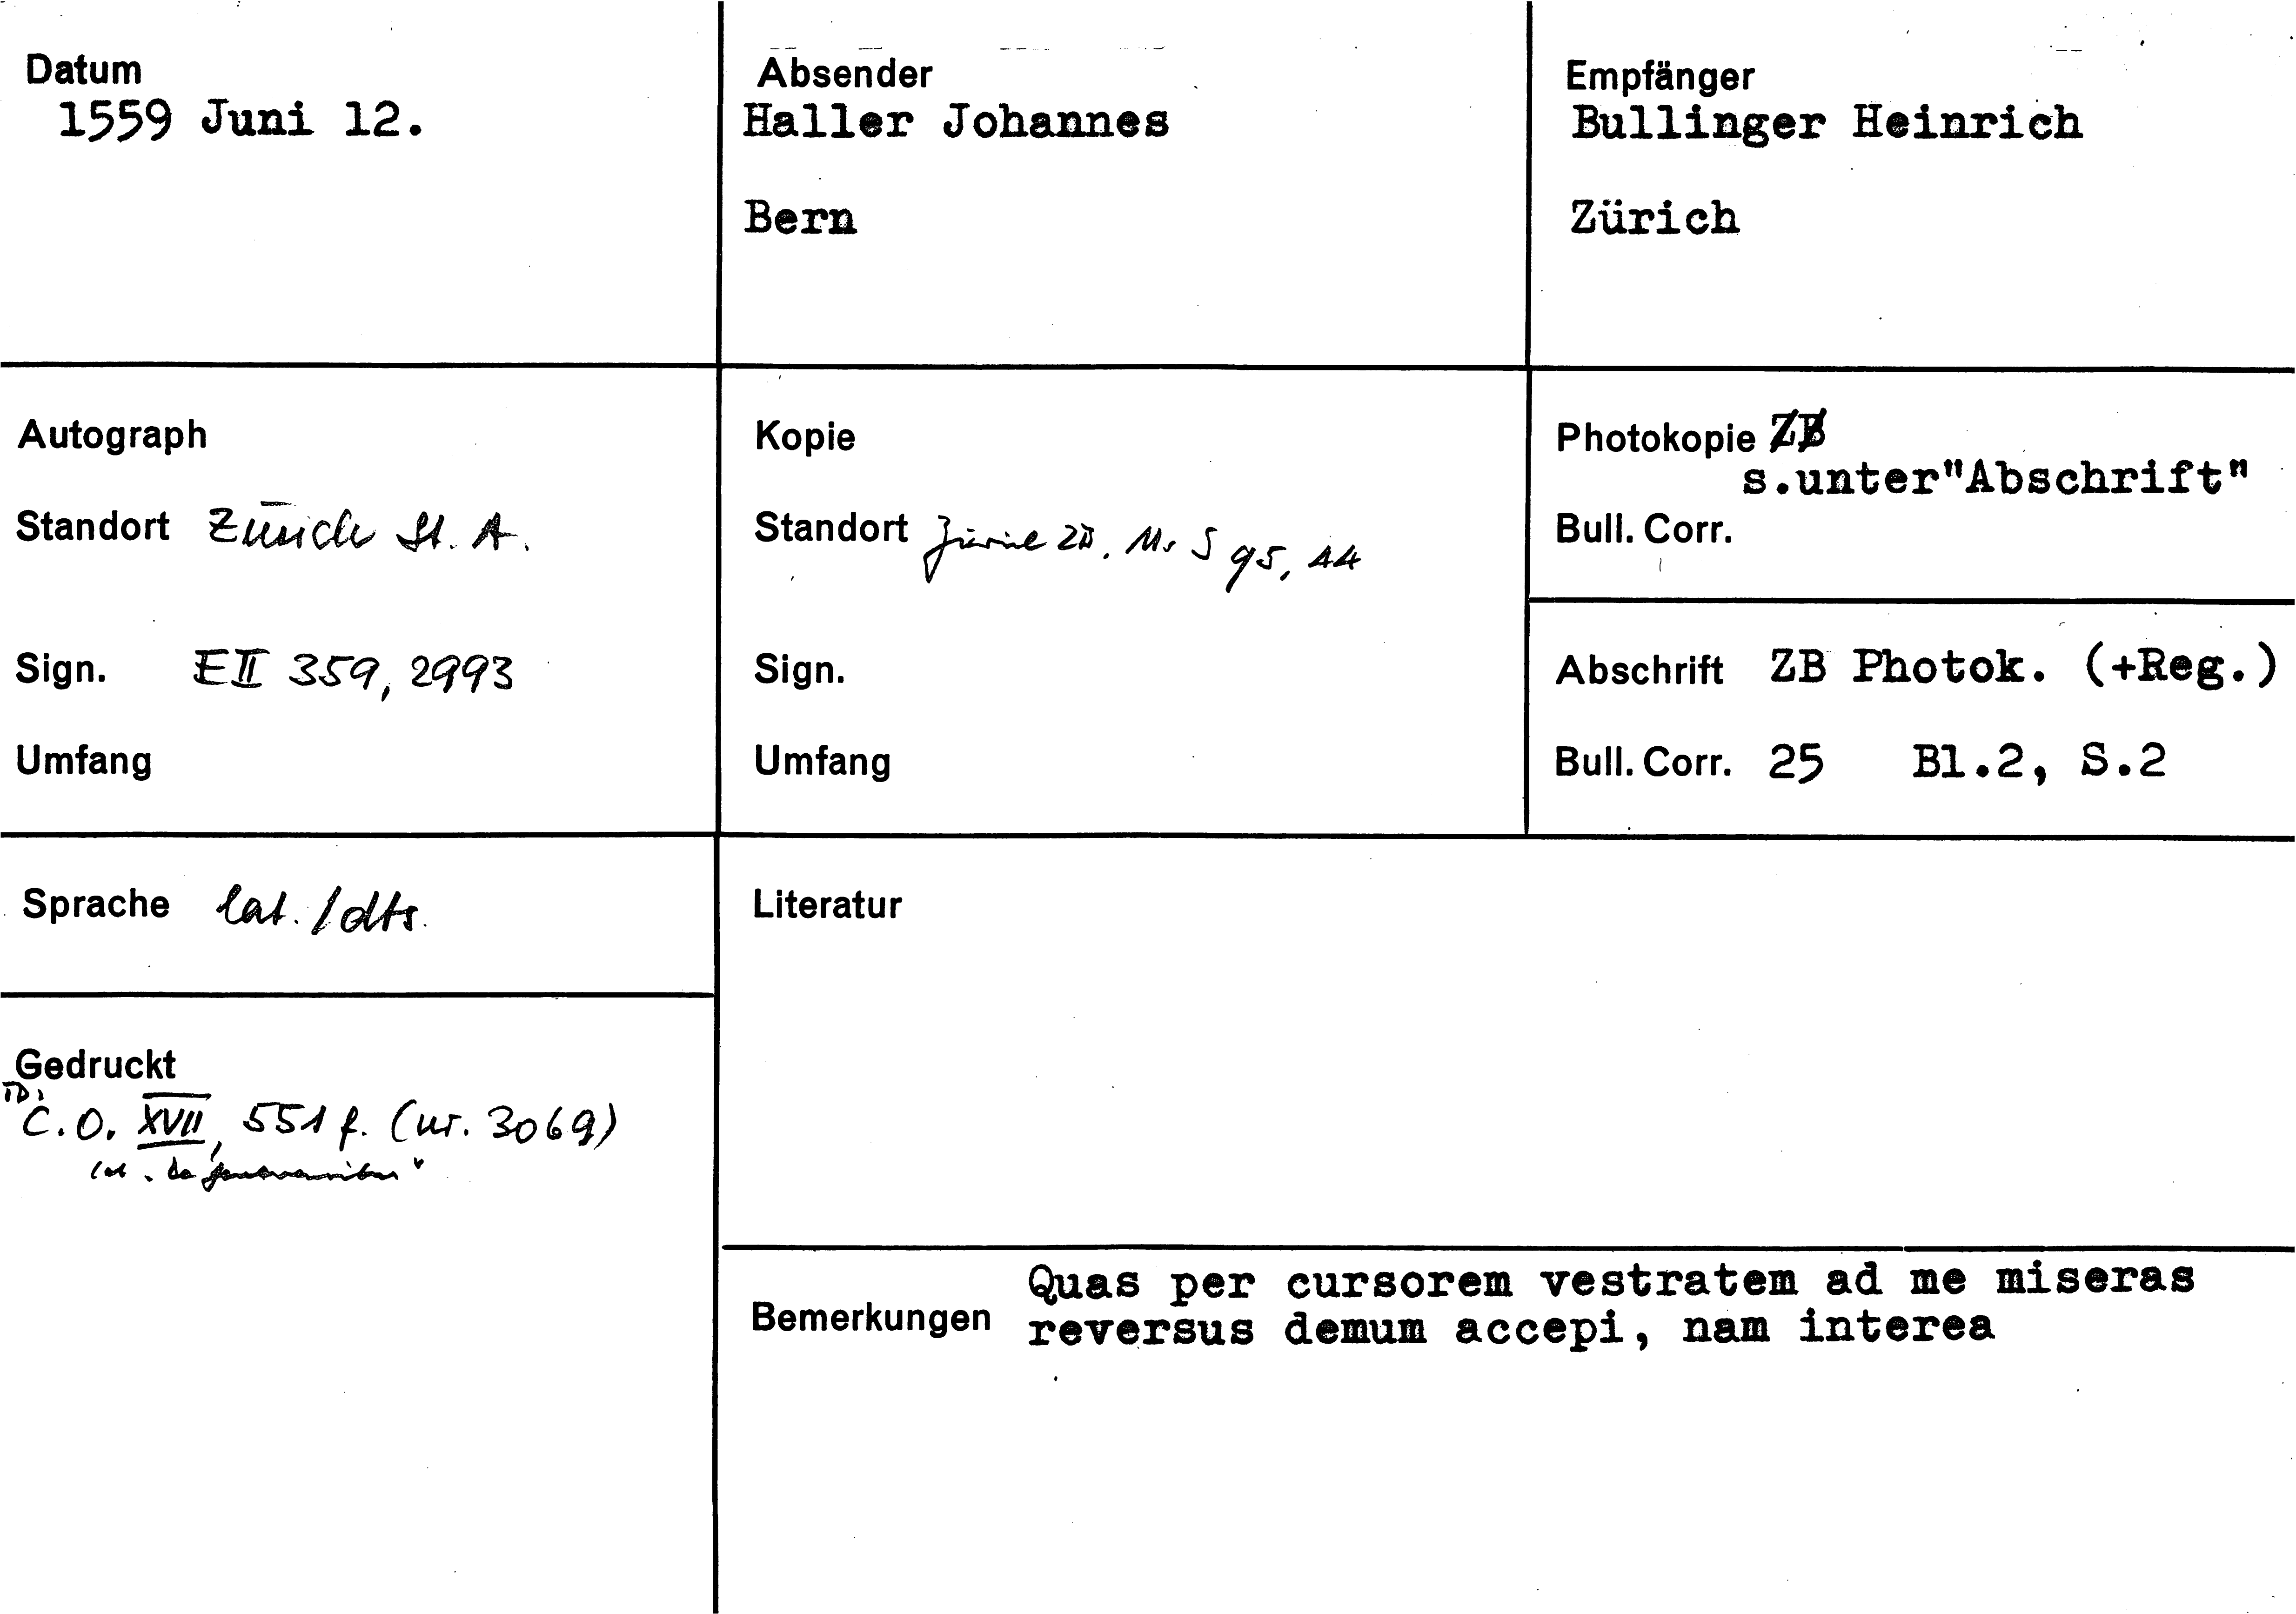 Datum
1559 Juni 12.
Absender
Haller Johannes
Bern
Empfänger
Bullinger Heinrich
Zürich
Autograph
Standort Zürich St. A.
Sign. E II 359, 2993
Umfang
Kopie
Standort Zürich ZB, Ms S 95, 44
Sign.
Umfang
Photokopie ZB
s.unter"Abschrift"
Bull. Corr.
Abschrift ZB Photok. (+Reg.)
Bull. Corr. 25 Bl.2, S.2
Sprache lat./dts.
Gedruckt
TD:
C.O. XVII, 551 f. (nr. 3069)
Literatur
Bemerkungen
Quas per cursorem vestratem ad me miseras
reversus demum accepi, nam interea